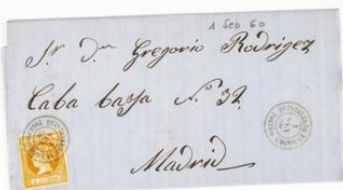 1 Feb 60
Sr. Dn. Gregorio Rodrigez
Caba bassa No. 32
Madrid